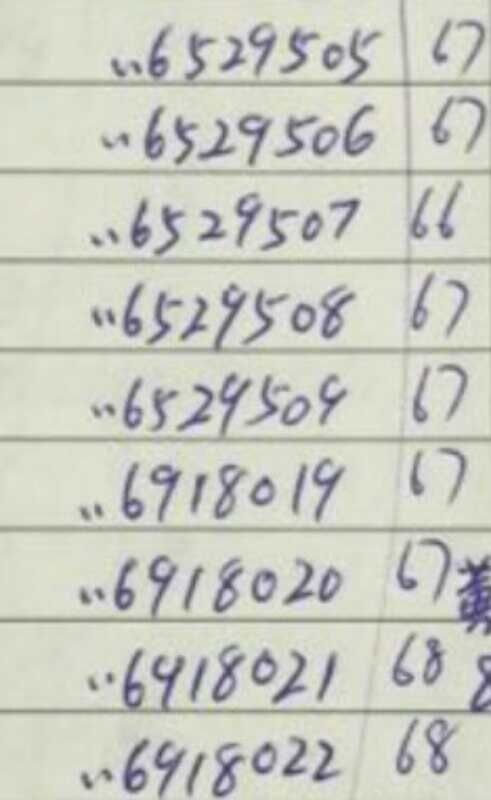 〃6529505 67
〃6529506 67
〃6529507 66
〃6529508 67
〃6529509 67
〃6918019 67
〃6918020 67 黄
〃6918021 68 8
〃6918022 68